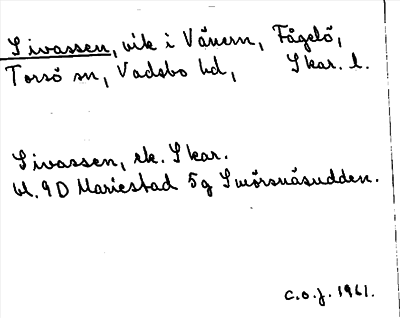 Sivassen, vik i Vänern, Fågelö,
Torsö sn, Vadsbo hd, Skar. l.
Sivassen, ek. Skar.
bl. 9D Mariestad 5g Smörsnäsudden.
c.o.j. 1961.